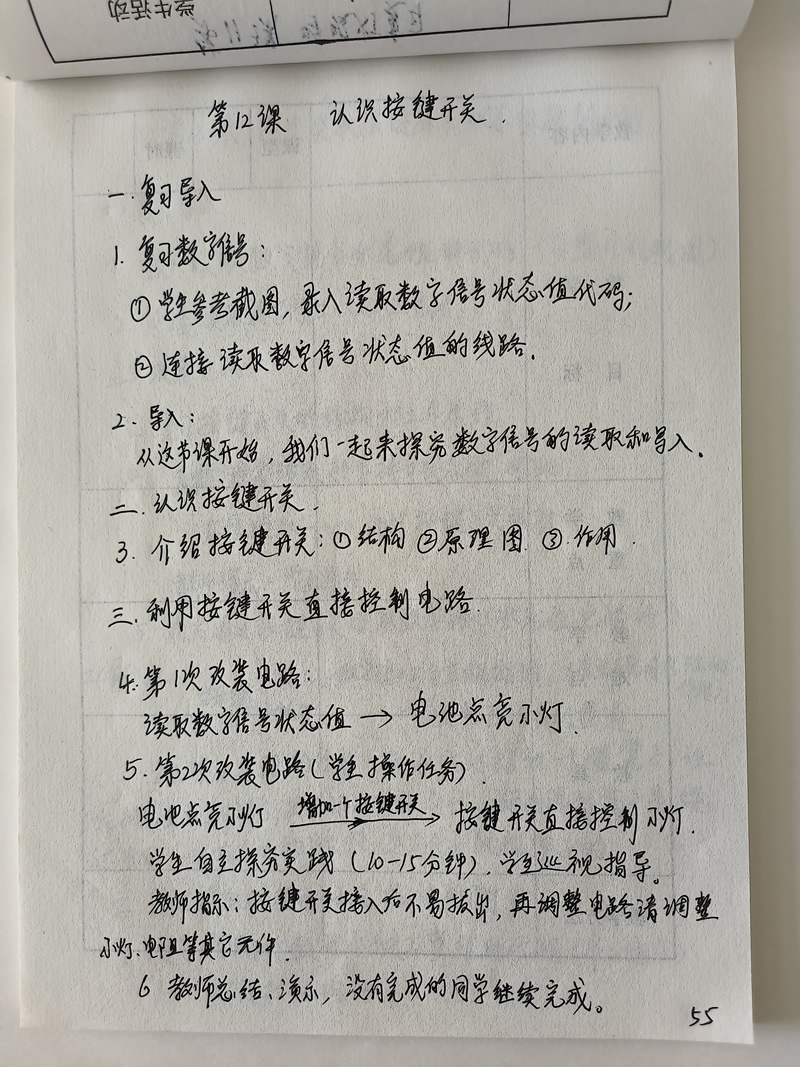 学生活动
第12课 认识按键开关.
一.复习导入
1. 复习数字信号:
①学生参考截图,录入读取数字信号状态值代码;
②连接读取数字信号状态值的线路.
2. 导入:
从这节课开始,我们一起来探究数字信号的读取和写入.
二.认识按键开关.
3. 介绍按键开关:①结构 ②原理图 ③.作用.
三.利用按键开关直接控制电路.
4.第1次改装电路:
读取数字信号状态值 → 电池点亮小灯.
5. 第2次改装电路(学生操作任务).
增加一个按键开关
电池点亮小灯 → 按键开关直接控制小灯.
学生自主探究实践(10-15分钟).学生巡视指导。
教师指示:按键开关接入后不易拔出,再调整电路请调整
小灯、电阻等其它元件.
6 教师总结、演示,没有完成的同学继续完成。
55